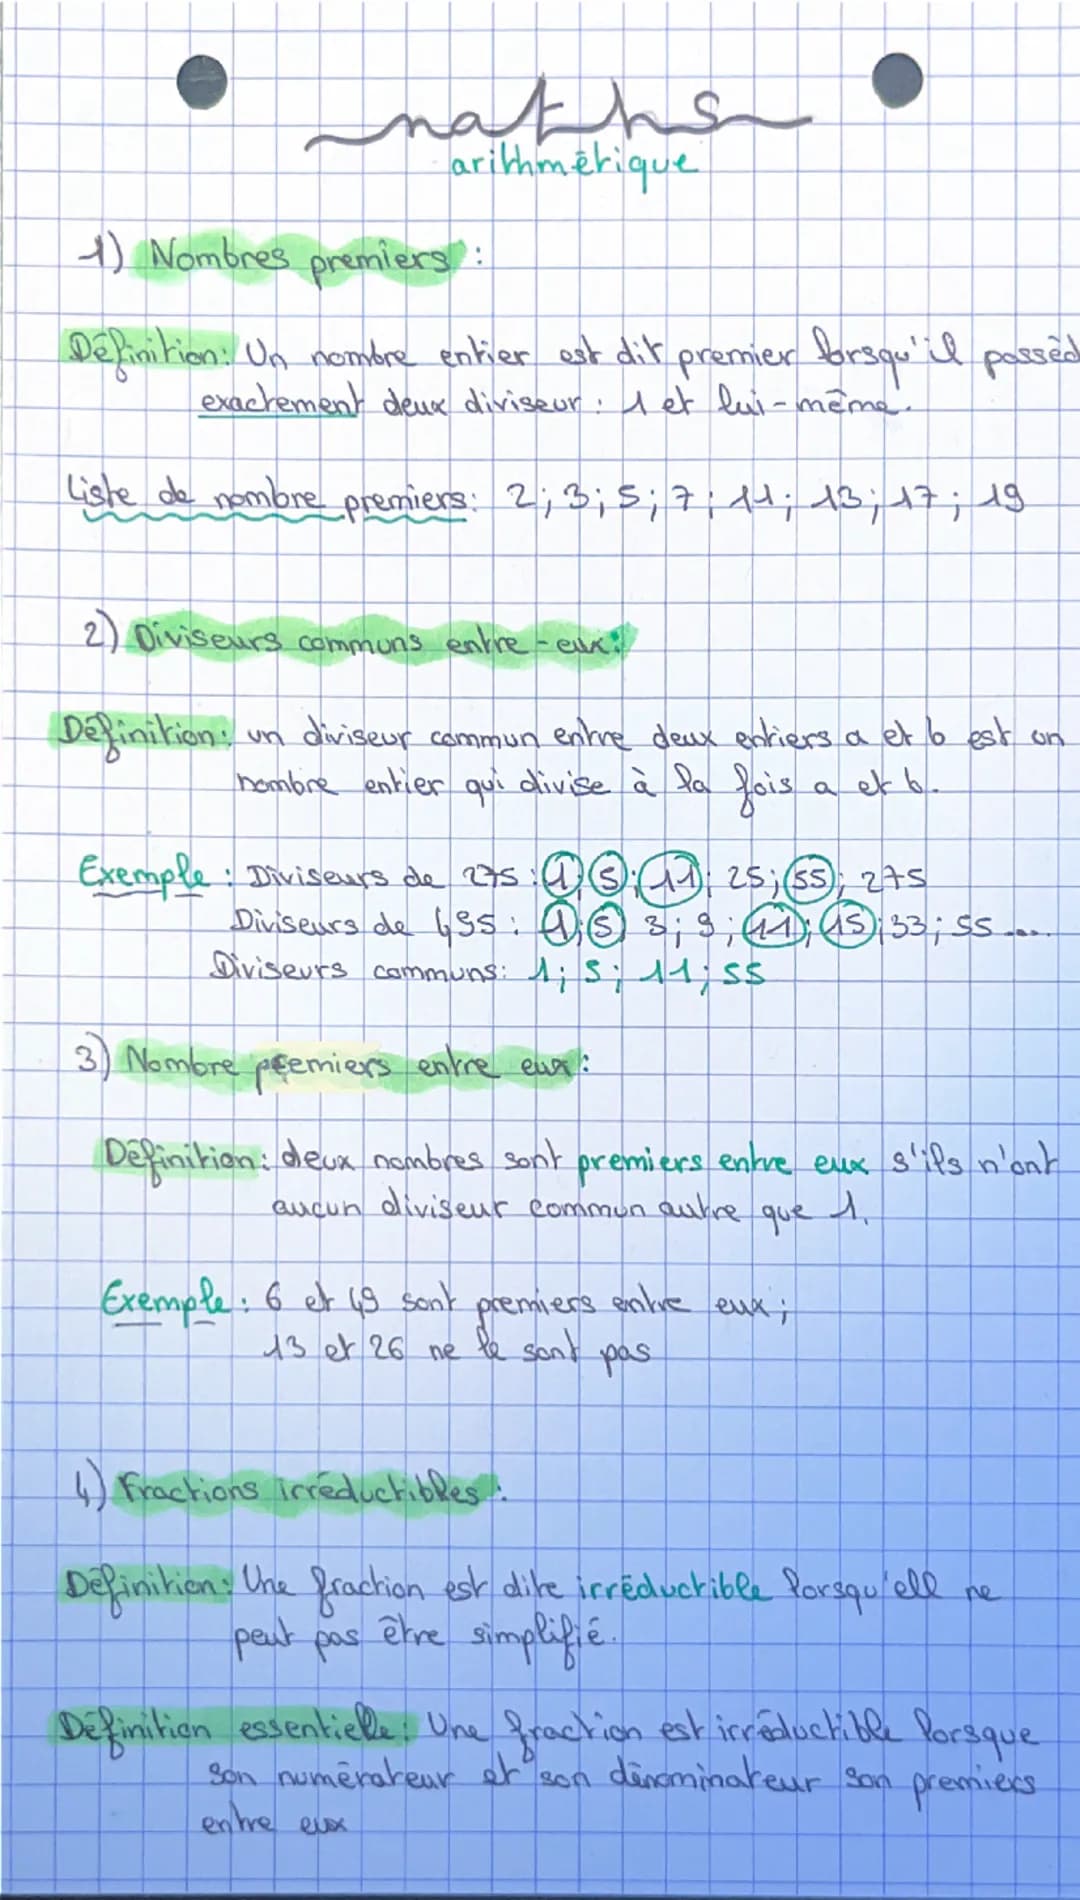 maths
arithmétique
1) Nombres premiers :
Définition: Un nombre entier est dit premier lorsqu'il possèd
exactement deux diviseur : 1 et lui-même.
Liste de nombre premiers: 2; 3; 5; 7; 11; 13; 17; 19
2) Diviseurs communs entre-eux:
Définition: un diviseur commun entre deux entiers a et b est un
nombre entier qui divise à la fois a et b.
Exemple : Diviseurs de 275 : 1; 5; 11; 25; 55; 275
Diviseurs de 495 : 1; 5; 3; 9; 11; 15; 33; 55 ....
Diviseurs communs: 1; 5; 11; 55
3) Nombre premiers entre eux :
Définition: deux nombres sont premiers entre eux s'ils n'ont
aucun diviseur commun autre que 1.
Exemple : 6 et 49 sont premiers entre eux ;
13 et 26 ne le sont pas
4) Fractions irréductibles :
Définition: Une fraction est dite irréductible lorsqu'ell ne
peut pas être simplifié.
Définition essentielle: Une fraction est irréductible lorsque
son numérateur et son dénominateur son premiers
entre eux